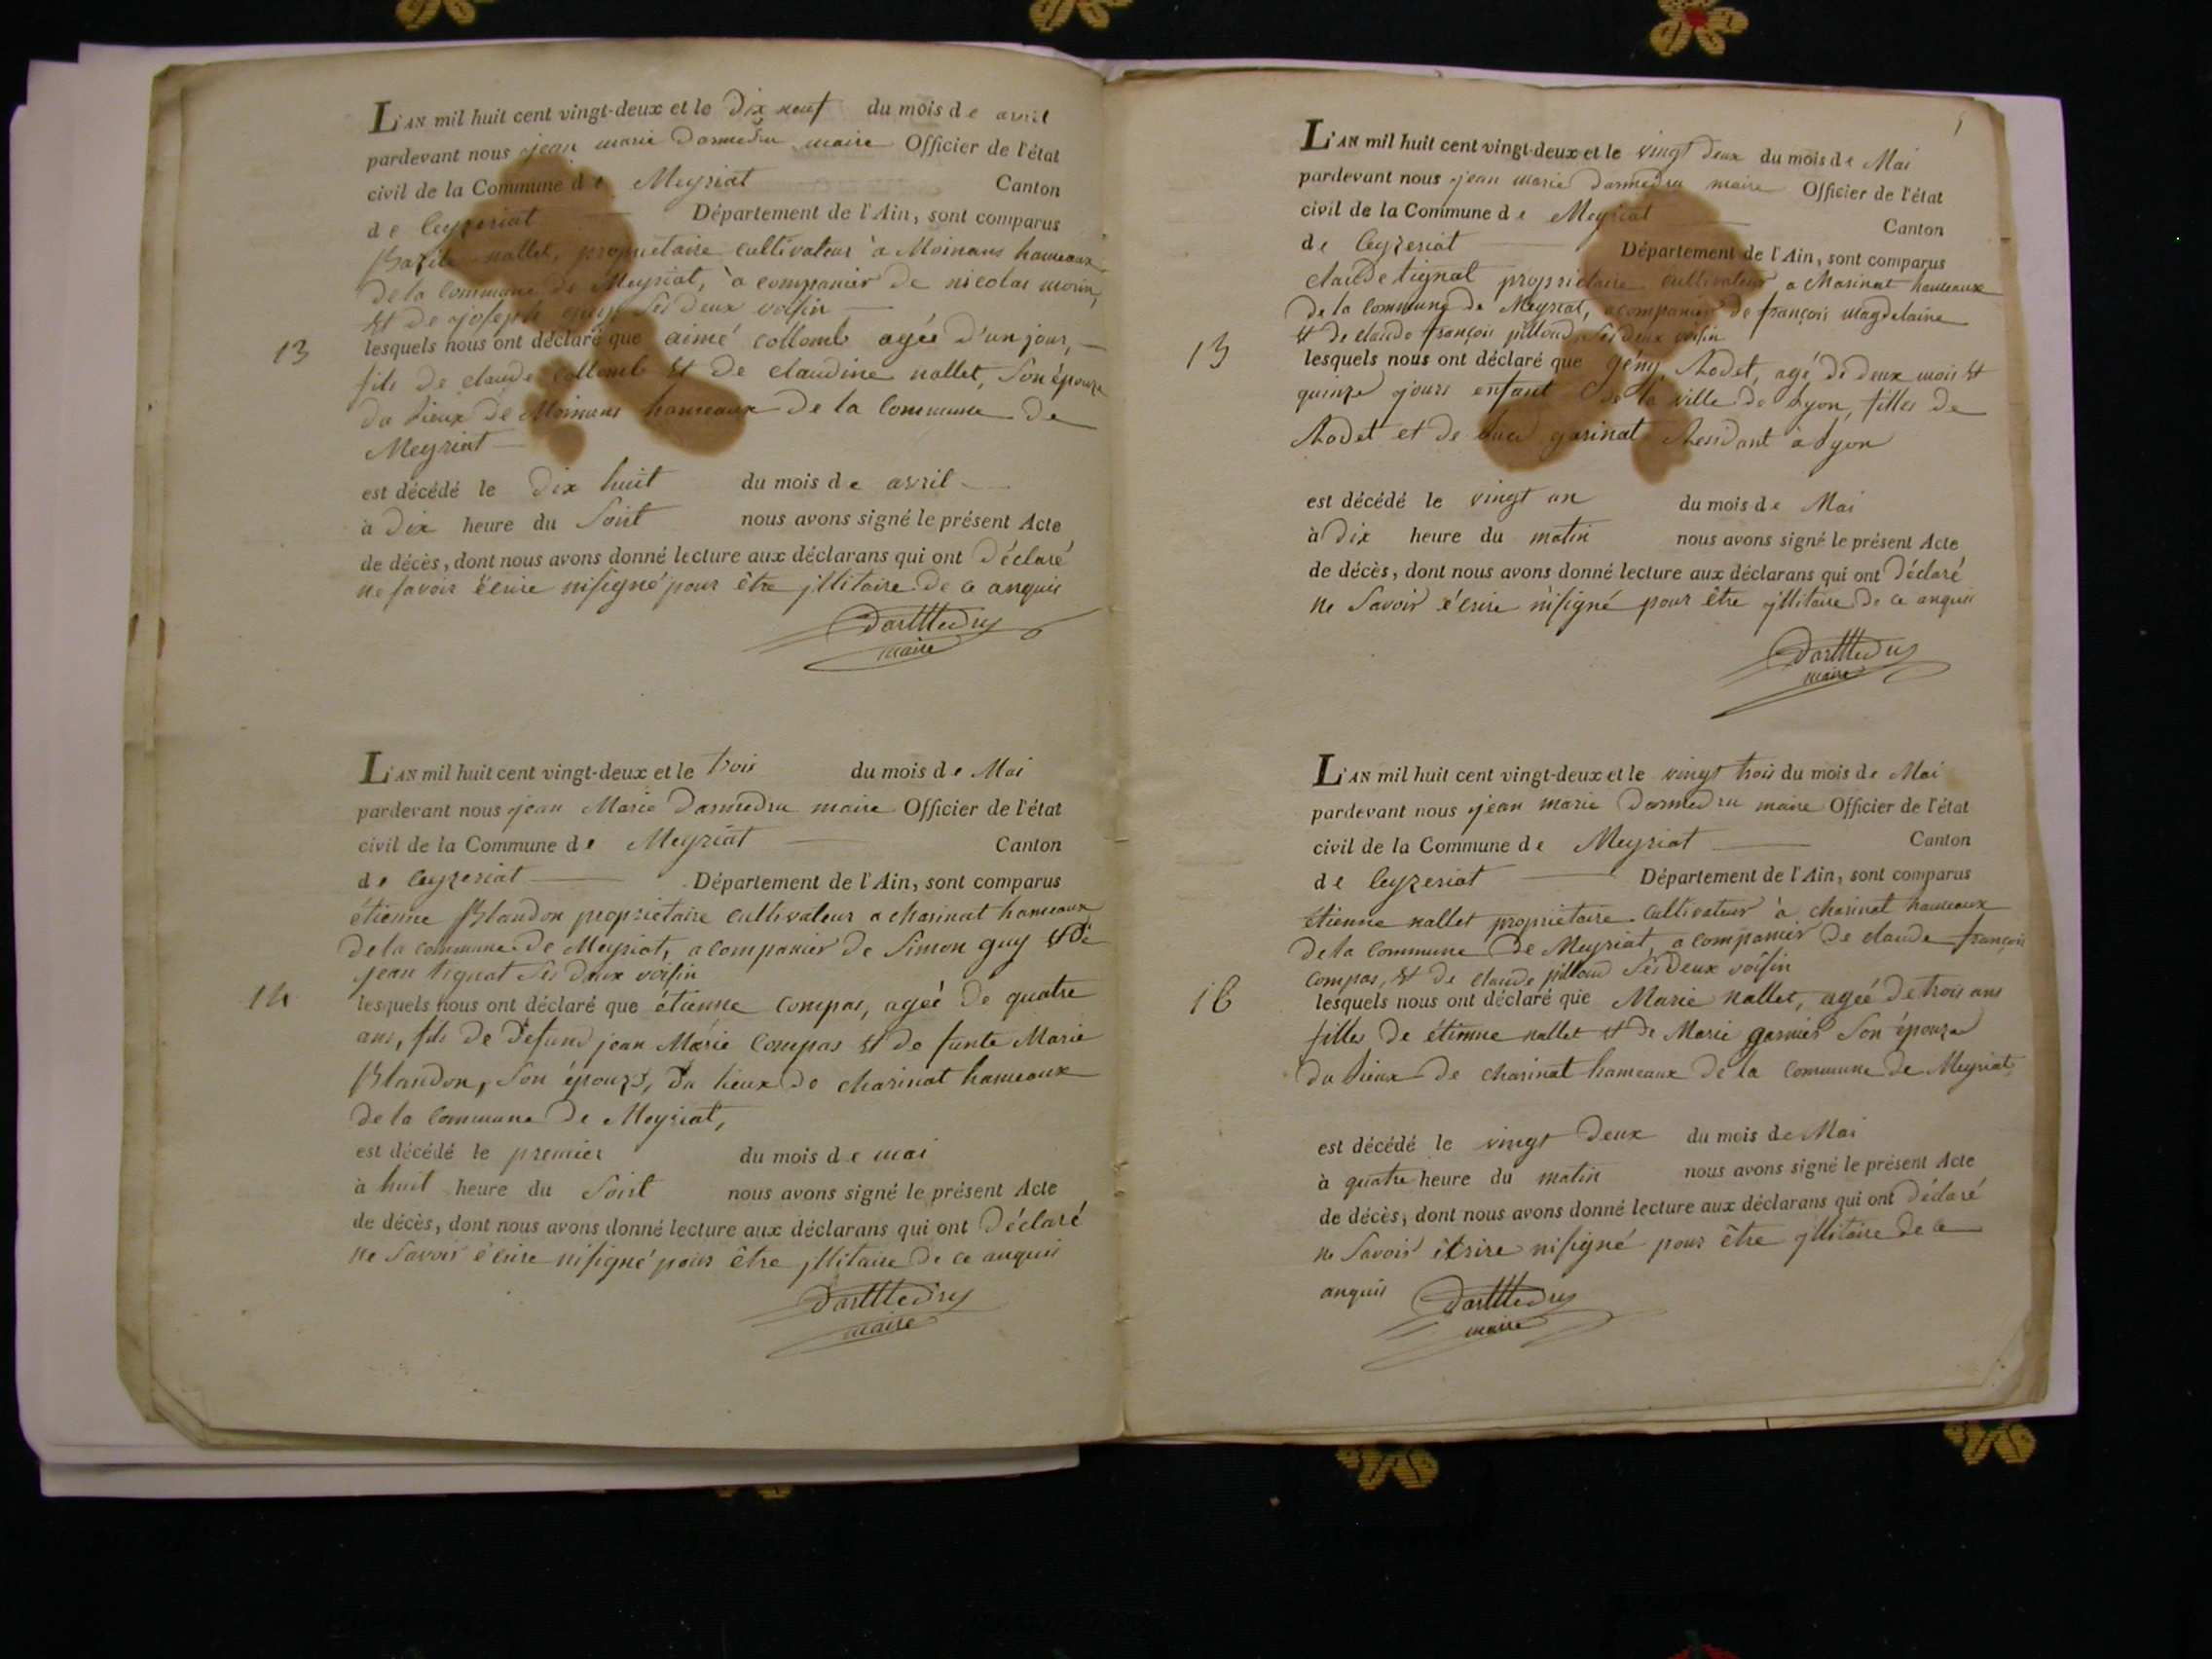 L'AN mil huit cent vingt-deux et le Dix neuf du mois de avril
pardevant nous jean marie Darmedru maire Officier de l'état
civil de la Commune de Meyriat Canton
de Ceyzeriat Département de l'Ain, sont comparus
nallet, propriétaire cultivateur à Moinans hameaux
De la commune de Meyriat, à companier de nicolas morin,
Et De joseph guy Ses deux voisin
13
lesquels nous ont déclaré que aimé collomb agée d'un jour,
fils De claude collomb Et De claudine nallet, Son épouze
Du Lieux De Moinans hameaux De la Commune De
Meyriat
est décédé le dix huit du mois de avril
à Dix heure du Soirt nous avons signé le présent Acte
de décès, dont nous avons donné lecture aux déclarans qui ont Déclaré
ne savoir écrire nisigné pour être jllitaire De ce anquis
Darmedru
maire
L'AN mil huit cent vingt-deux et le trois du mois de Mai
pardevant nous jean Marie Darmedru maire Officier de l'état
civil de la Commune de Meyriat Canton
de Ceyzeriat Département de l'Ain, sont comparus
étienne Blandon propriétaire cultivateur a charinat hameaux
De la commune De Meyriat, a companier De Simon guy Et De
jean tignat Ses Deux voisin
14
lesquels nous ont déclaré que étienne compas, agée De quatre
ans, fils De Defund jean Marie Compas Et De funte Marie
Blandon, Son épouze, Du lieux De charinat hameaux
De la Commune De Meyriat,
est décédé le premier du mois de mai
à huit heure du Soirt nous avons signé le présent Acte
de décès, dont nous avons donné lecture aux déclarans qui ont Déclaré
ne Savoir écrire nisigné pour être jllitaire De ce anquis
Darmedru
maire
L'AN mil huit cent vingt-deux et le vingt Deux du mois de Mai
pardevant nous jean marie Darmedru maire Officier de l'état
civil de la Commune de Meyriat Canton
de Ceyzeriat Département de l'Ain, sont comparus
claude tignat propriétaire cultivateur a Charinat hameaux
De la commune De Meyriat, acompanier De françois magdelaine
Et De claude françois pilloud Ses deux voisin
15
lesquels nous ont déclaré que gény Rodet, agé De deux mois Et
quinze jours enfant De la ville De Lyon, filles De
Rodet et de garinat Residant à Lyon
est décédé le vingt un du mois de Mai
à Dix heure du matin nous avons signé le présent Acte
de décès, dont nous avons donné lecture aux déclarans qui ont Déclaré
ne Savoir écrire nisigné pour être jllitaire De ce anquis
Darmedru
maire
L'AN mil huit cent vingt-deux et le vingt trois du mois de Mai
pardevant nous jean marie Darmedru maire Officier de l'état
civil de la Commune de Meyriat Canton
de Ceyzeriat Département de l'Ain, sont comparus
étienne nallet propriétaire cultivateur à charinat hameaux
De la commune De Meyriat, a companier De claude françois
compas, Et De claude pilloud Ses Deux voisin
16
lesquels nous ont déclaré que Marie nallet, agée De trois ans
filles De étienne nallet Et De Marie garnier Son épouze
Du Lieux De charinat hameaux De la Commune De Meyriat,
est décédé le vingt Deux du mois de Mai
à quatre heure du matin nous avons signé le présent Acte
de décès, dont nous avons donné lecture aux déclarans qui ont Déclaré
ne Savoir écrire nisigné pour être jllitaire De ce
anquis
Darmedru
maire